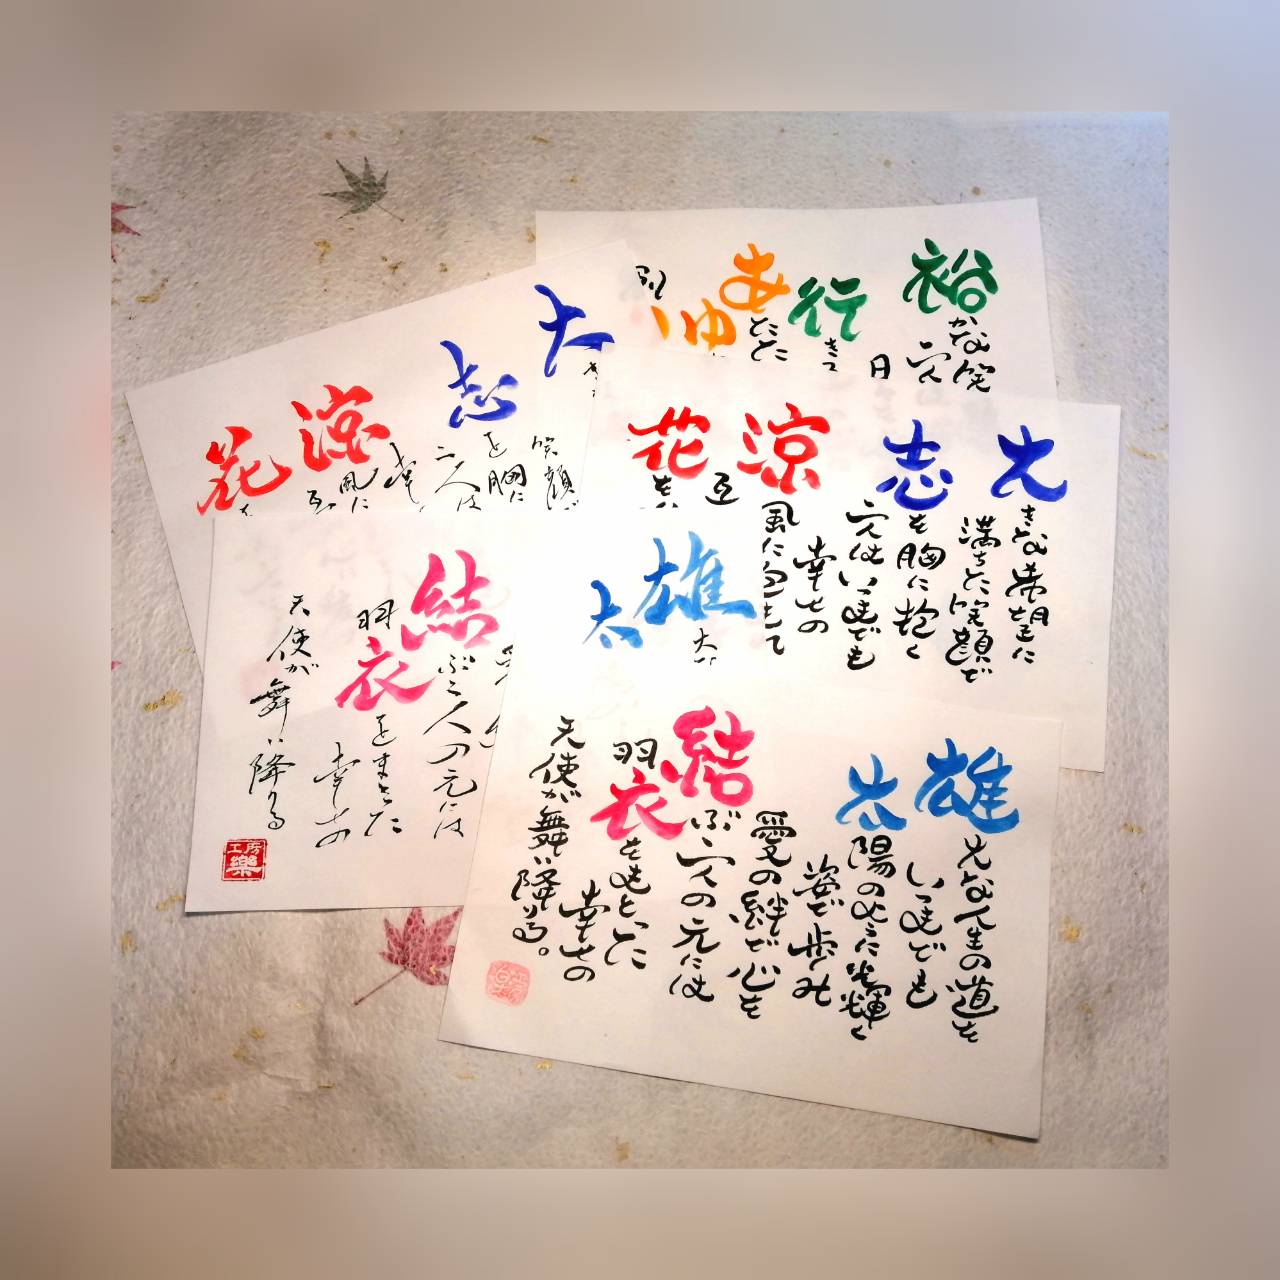 裕
かな笑
二人
日
行
きて
あ
たた
ゆ
大
志
を胸に
笑顔
二人は
幸
涼
風に
互
花
を
大
きな希望に
満ちた笑顔で
志
を胸に抱く
二人はいつまでも
幸せの
涼
風に
互
花
を
雄
太
大
結
ぶ二人の元には
羽
衣
をまとった
幸せの
天使が舞い降りる
工房
樂
雄
大な人生の道を
いつまでも
太
陽のように光輝く
姿で歩み
愛の絆で心を
結
ぶ二人の元には
羽
衣
をまとった
幸せの
天使が舞い降りる。